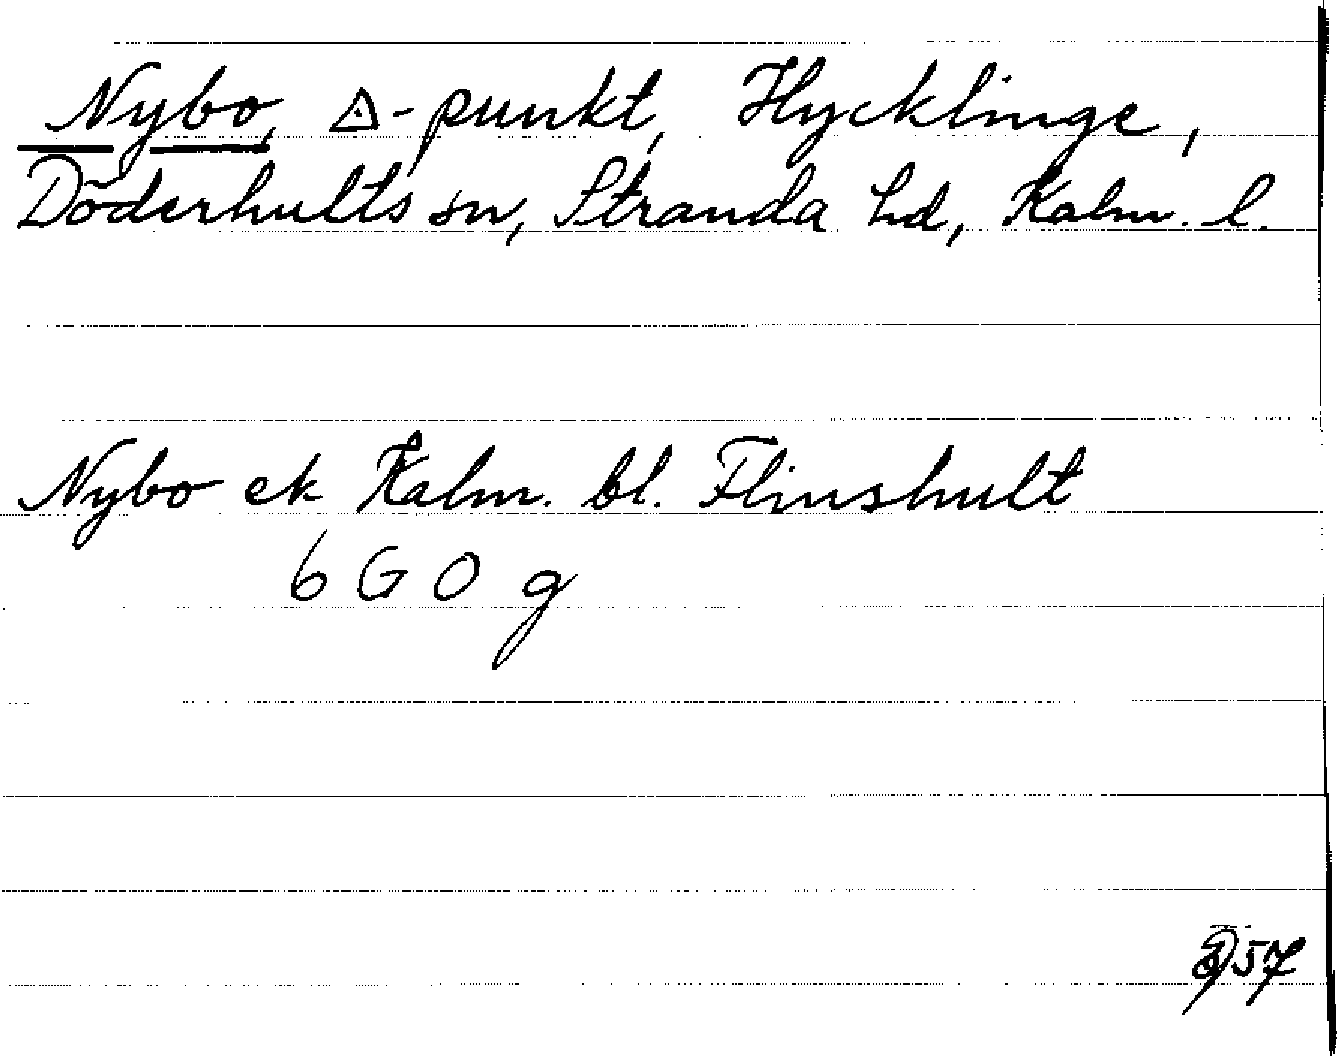 Nybo, △-punkt, Hycklinge,
Döderhults sn, Stranda hd, Kalm. l.
Nybo ek Kalm. bl. Flinshult
6 G 0 g
57